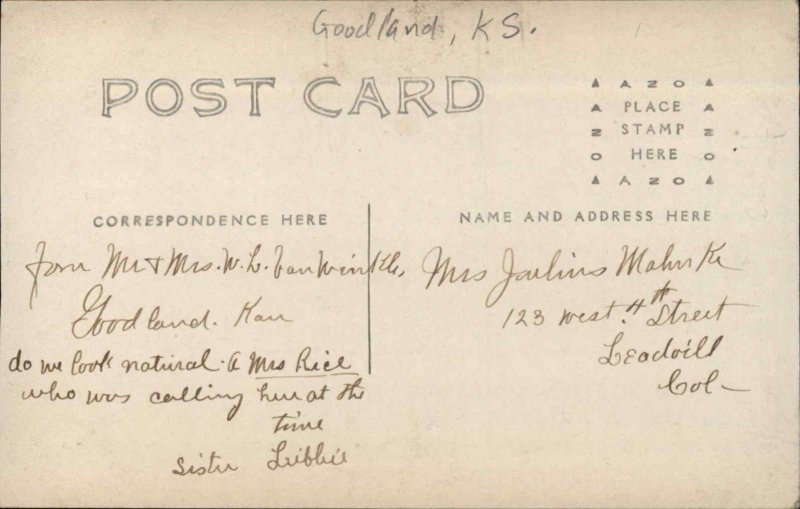 Goodland, KS.
POST CARD
AZO
PLACE
STAMP
HERE
AZO
CORRESPONDENCE HERE
from Mr & Mrs. W. L. VanWinkle,
Goodland. Kan
do we look natural. a Mrs Rice
who was calling here at the
time
Sister Libbie
NAME AND ADDRESS HERE
Mrs Julius Mahnke
123 west. 4th Street
Leadvill
Col-